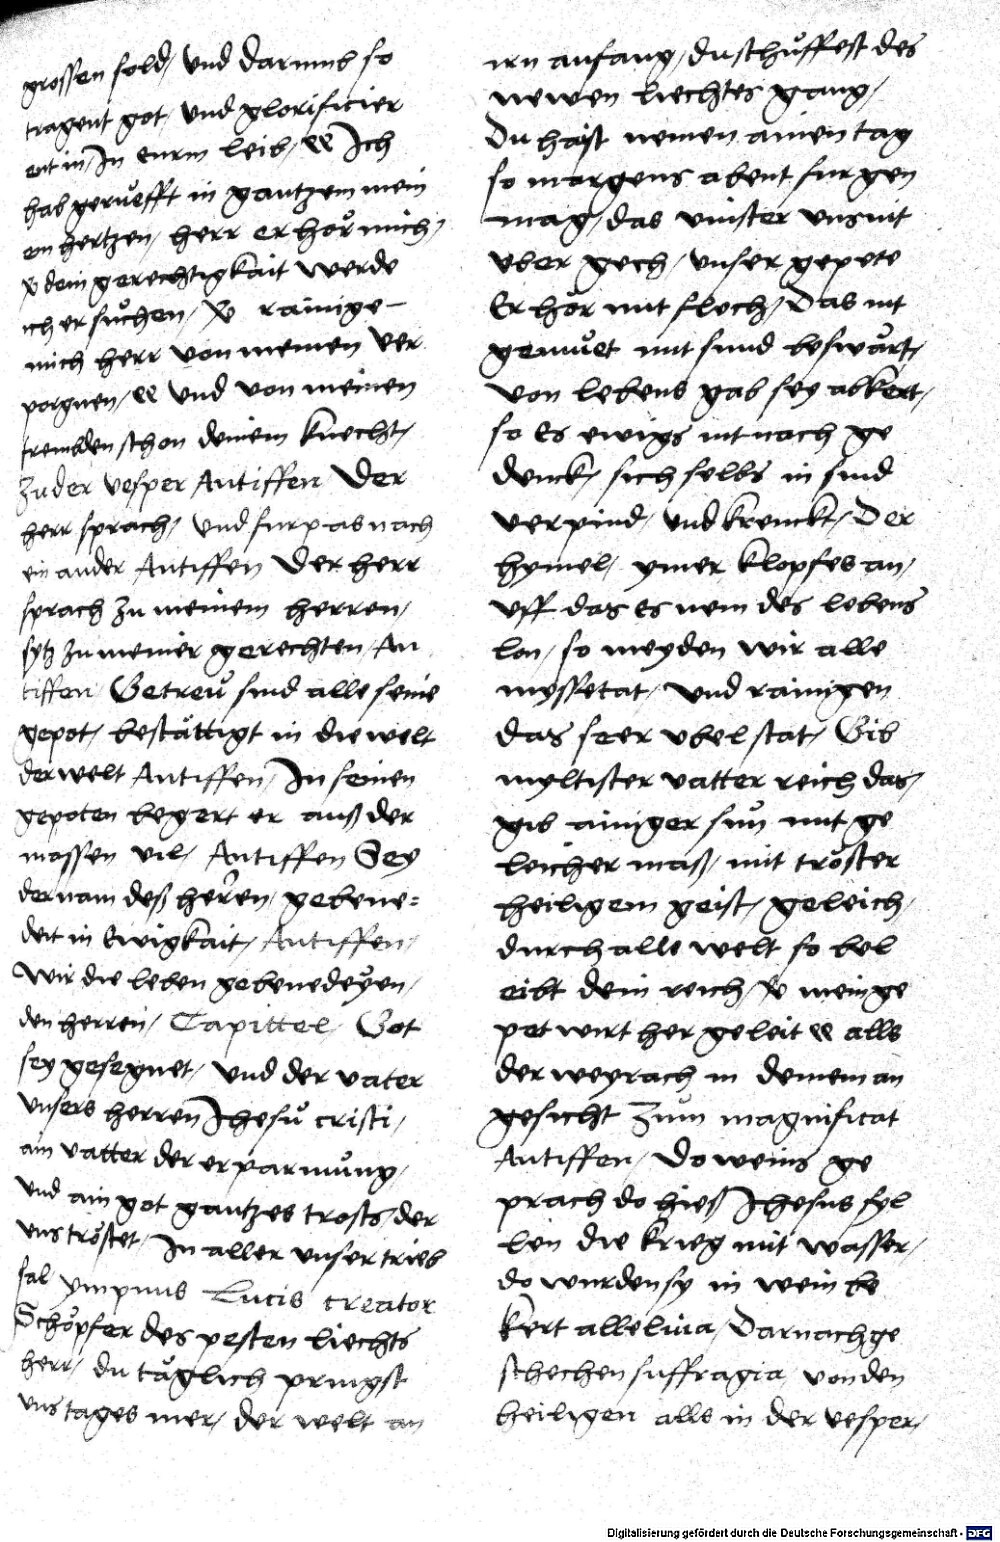 grossen sold, und darumb so
tragent got, und glorificier
ent in, In eurm leib, Ich
hab geruͤefft in gantzem mein
em hertzen, herr erhoͤr mich,
dein gerechtigkait werde
ich ersuͦchen, rainige
mich herr von meinen ver
porgnen, und von meinen
frembden schon deinem knecht,
Zu der vesper Antiffen Der
herr sprach, und furpas nach
ein ander Antiffen Der herr
sprach zu meinem herren,
sytz zu meiner gerechten, An
tiffen Getreuͤ sind alle seine
gepot, bestaͤttigt in die welt
der welt Antiffen, In seinen
gepoten begert er auß der
massen vil, Antiffen Sey
der nam deß herren, gebene=
deit in Ewigkait, Antiffen,
Wir die leben gebenedeyen,
den herren, Capittel, Got
sey gesegnet, und der vater
unsers herren Jhesu cristi,
ain vatter der erparmuͤng,
und ain got gantzes trosts, der
uns troͤstet, In aller unser trieb
sal ympnus Lucis creator
Schoͤpfer des pesten liechts
herr, du taͤglich pringst
uns tages mer, der welt an
irn anfang, du schuͤffest des
newen liechtes gang,
Du haist nemen ainen tag
so margens abent furgen
mag, das vinster uns nit
uber gech, unser gepete
Erhoͤr mit flech, Das nit
gemuͤet mit sund beswaͤrt,
von lebens gab sey abkert,
so Es ewigs nit nach ge
denck, sich selbs in sind
verpind, und krenckt, Der
hymel, ymer klopfes an,
uff das Es nem des lebens
lon, so meyden wir alle
myssetat, und rainigen
das seer ubel stat, Gib
myltister vatter reich das,
gib ainiger sun mit ge
leicher maß, mit troͤster
heiligem geist, geleich,
durch alle welt so bel
eibt dein reich, mein ge
pet wirt her geleit alls
der weyrach in deinem an
gesicht Zum magnificat
Antiffen, Do weins ge
prach do hieß Jhesus fyl
len die krieg mit wasser,
do wurden sy in wein be
kert alleluia, Darnach ge
schechen suffragia von den
heiligen alls in der vesper,
Digitalisierung gefördert durch die Deutsche Forschungsgemeinschaft - DFG